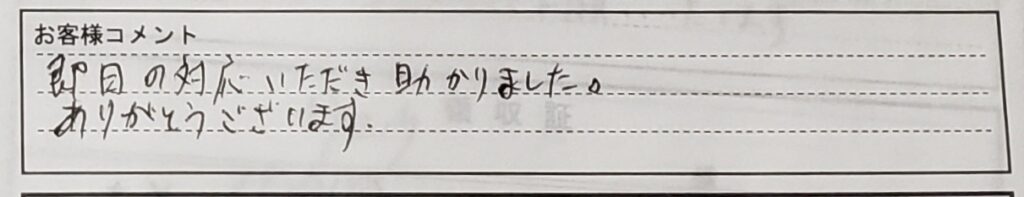 お客様コメント
即日の対応いただき助かりました。
ありがとうございます.
領収証